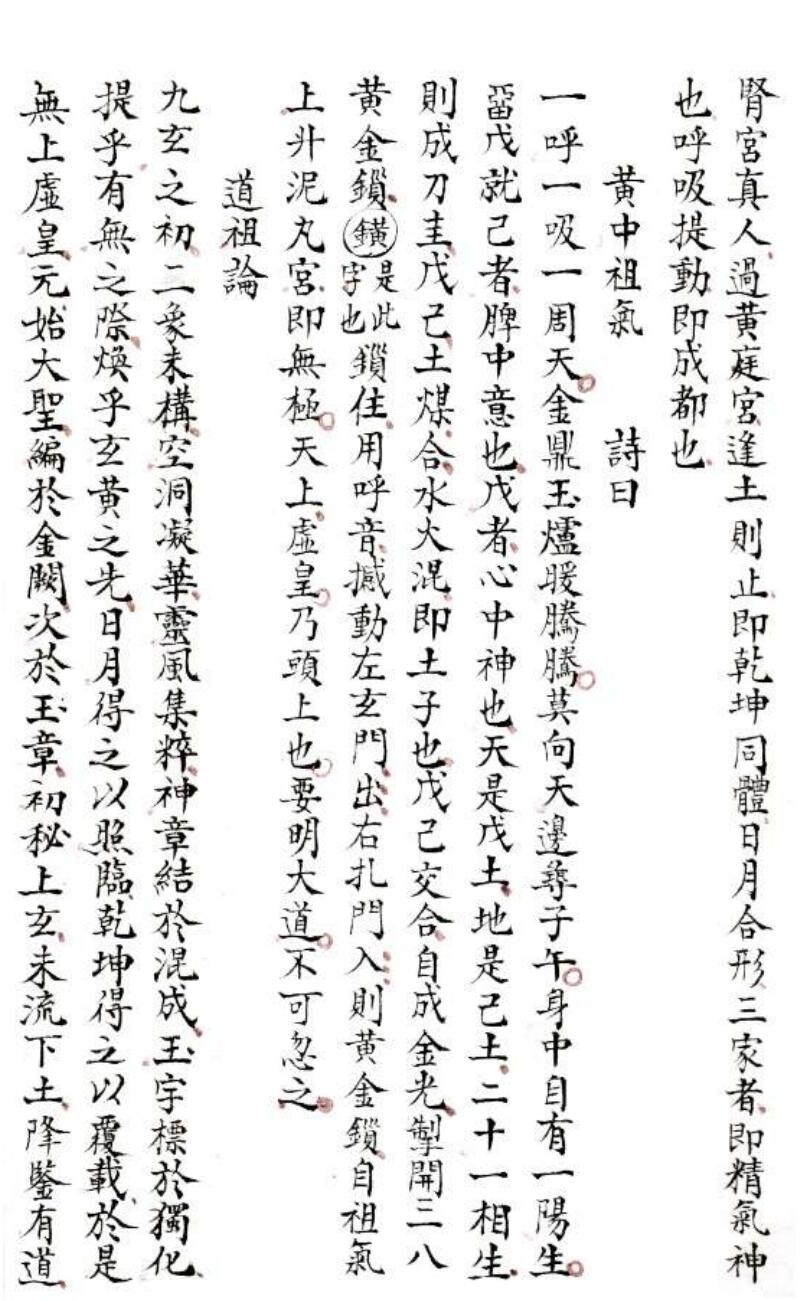 腎宮真人過黃庭宮逢土則止即乾坤同體日月合形三家者即精氣神
也呼吸提動即成都也
黃中祖氣　詩曰
一呼一吸一周天金鼎玉爐暖騰騰莫向天邊尋子午身中自有一陽生
留戊就己者脾中意也戊者心中神也天是戊土地是己土二十一相生
則成刀圭戊己土煤合水火混即土子也戊己交合自成金光掣開三八
黃金鎖鐄是此字也鎖住用呼音撼動左玄門出右扎門入則黃金鎖自祖氣
上升泥丸宮即無極天上虛皇乃頭上也要明大道不可忽之
道祖論
九玄之初二象未構空洞凝華靈風集粹神章結於混成玉宇標於獨化
提乎有無之際煥乎玄黃之先日月得之以照臨乾坤得之以覆載於是
無上虛皇元始大聖編於金闕次於玉章初秘上玄未流下土降鑒有道